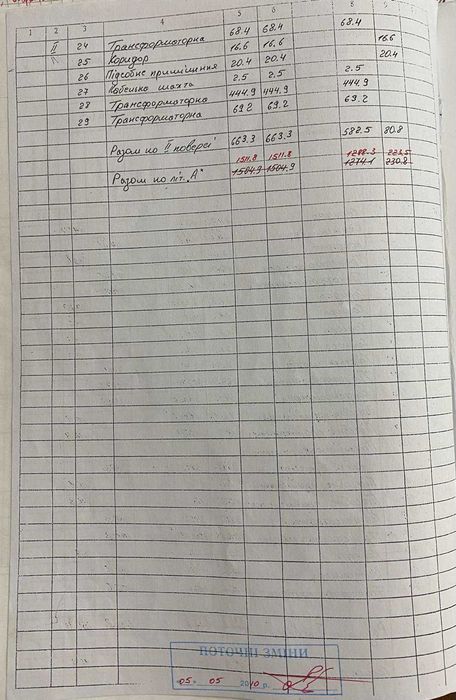 1 2 3 4 5 6 8
II 24 Трансформаторна 68.4 68.4 68.4
25 Коридор 16.6 16.6 16.6
26 Підсобне приміщення 20.4 20.4 20.4
27 Кабельна шахта 2.5 2.5 2.5
28 Трансформаторна 444.9 444.9 444.9
29 Трансформаторна 69.2 69.2 69.2
Разом по II поверсі 663.3 663.3 588.5 80.8
1511.8 1511.8 1288.3 223.5
Разом по літ. "А" 1504.9 1504.9 1274.1 230.8
ПОТОЧНІ ЗМІНИ
05 05 2010 р.